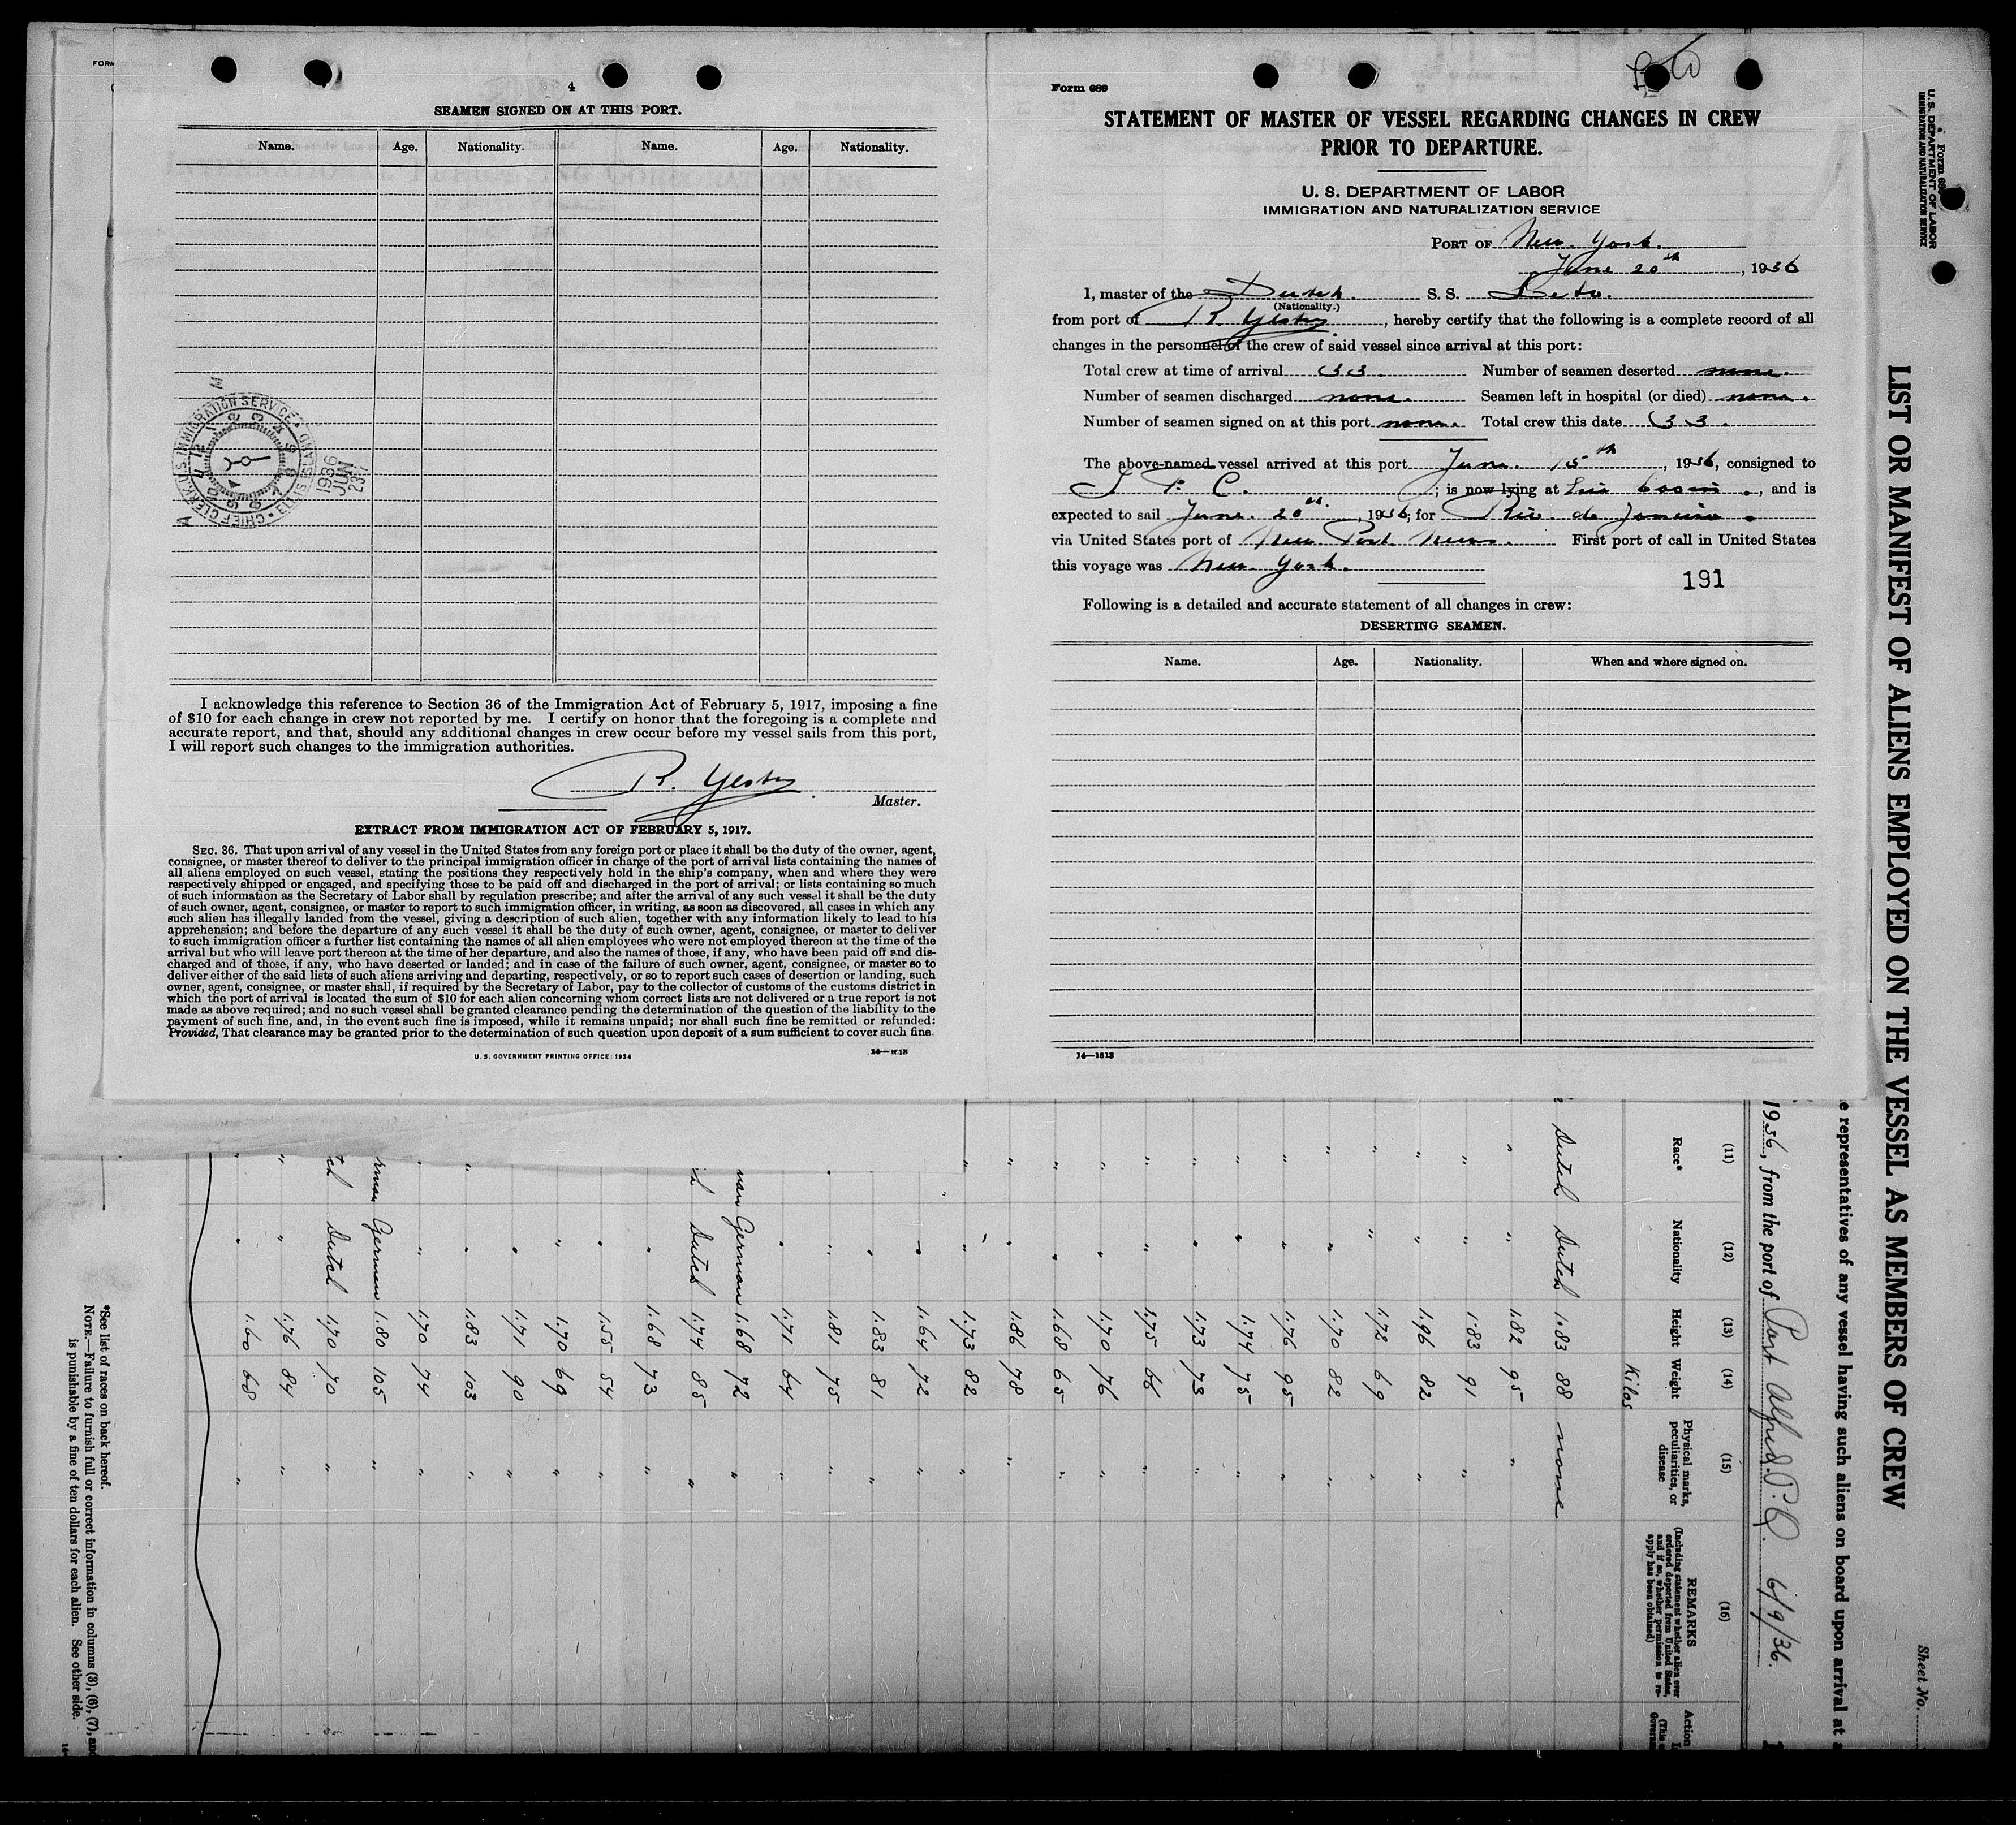 4
SEAMEN SIGNED ON AT THIS PORT.
Name. Age. Nationality. Name. Age. Nationality.
CHIEF CLERK U.S. IMMIGRATION SERVICE ELLIS ISLAND
1936
JUN
23
I acknowledge this reference to Section 36 of the Immigration Act of February 5, 1917, imposing a fine
of $10 for each change in crew not reported by me. I certify on honor that the foregoing is a complete and
accurate report, and that, should any additional changes in crew occur before my vessel sails from this port,
I will report such changes to the immigration authorities.
R. Yestry
Master.
EXTRACT FROM IMMIGRATION ACT OF FEBRUARY 5, 1917.
SEC. 36. That upon arrival of any vessel in the United States from any foreign port or place it shall be the duty of the owner, agent,
consignee, or master thereof to deliver to the principal immigration officer in charge of the port of arrival lists containing the names of
all aliens employed on such vessel, stating the positions they respectively hold in the ship's company, when and where they were
respectively shipped or engaged, and specifying those to be paid off and discharged in the port of arrival; or lists containing so much
of such information as the Secretary of Labor shall by regulation prescribe; and after the arrival of any such vessel it shall be the duty
of such owner, agent, consignee, or master to report to such immigration officer, in writing, as soon as discovered, all cases in which any
such alien has illegally landed from the vessel, giving a description of such alien, together with any information likely to lead to his
apprehension; and before the departure of any such vessel it shall be the duty of such owner, agent, consignee, or master to deliver
to such immigration officer a further list containing the names of all alien employees who were not employed thereon at the time of the
arrival but who will leave port thereon at the time of her departure, and also the names of those, if any, who have been paid off and dis-
charged and of those, if any, who have deserted or landed; and in case of the failure of such owner, agent, consignee, or master so to
deliver either of the said lists of such aliens arriving and departing, respectively, or so to report such cases of desertion or landing, such
owner, agent, consignee, or master shall, if required by the Secretary of Labor, pay to the collector of customs of the customs district in
which the port of arrival is located the sum of $10 for each alien concerning whom correct lists are not delivered or a true report is not
made as above required; and no such vessel shall be granted clearance pending the determination of the question of the liability to the
payment of such fine, and, in the event such fine is imposed, while it remains unpaid; nor shall such fine be remitted or refunded:
Provided, That clearance may be granted prior to the determination of such question upon deposit of a sum sufficient to cover such fine.
U.S. GOVERNMENT PRINTING OFFICE: 1934
Form 689
STATEMENT OF MASTER OF VESSEL REGARDING CHANGES IN CREW
PRIOR TO DEPARTURE.
U. S. DEPARTMENT OF LABOR
IMMIGRATION AND NATURALIZATION SERVICE
PORT OF New. York.
June 20th, 1936
I, master of the Dutch. S. S. Leto.
(Nationality.)
from port of R. Yestry, hereby certify that the following is a complete record of all
changes in the personnel of the crew of said vessel since arrival at this port:
Total crew at time of arrival 33. Number of seamen deserted none.
Number of seamen discharged none. Seamen left in hospital (or died) none.
Number of seamen signed on at this port none. Total crew this date 33.
The above-named vessel arrived at this port June. 15th, 1936, consigned to
; is now lying at Erie bassin., and is
expected to sail June. 20th., 1936; for Rio. de Janeiro.
via United States port of New. Port. News. First port of call in United States
this voyage was New York.
191
Following is a detailed and accurate statement of all changes in crew:
DESERTING SEAMEN.
Name. Age. Nationality. When and where signed on.
14—1613
U. S. DEPARTMENT OF LABOR
IMMIGRATION AND NATURALIZATION SERVICE
Sheet No.
LIST OR MANIFEST OF ALIENS EMPLOYED ON THE VESSEL AS MEMBERS OF CREW
representatives of any vessel having such aliens on board upon arrival at
1936, from the port of Port Alfred. P.Q. 6/9/36.
(11) (12) (13) (14) (15) (16)
Race* Nationality Height Weight Physical marks, peculiarities, or disease REMARKS (Including statement whether alien ever ordered deported from United States, and if so, whether permission to re-apply has been obtained) Action
Kilos
Dutch Dutch 1.83 88 none
" " 1.82 95 "
" " 1.83 91 "
" " 1.96 82 "
" " 1.72 69 "
" " 1.70 82 "
" " 1.76 95 "
" " 1.74 75 "
" " 1.73 73 "
" " 1.75 66 "
" " 1.70 76 "
" " 1.68 65 "
" " 1.86 78 "
" " 1.73 82 "
" 1.64 72 "
" 1.83 81 "
" " 1.81 75 "
" 1.71 64 "
German 1.68 72 "
Dutch 1.74 85 "
" 1.68 73 "
" 1.55 54 "
" 1.70 69 "
" 1.71 90 "
" " 1.83 103 "
" " 1.70 74 "
German 1.80 105 "
Dutch 1.70 70 "
" " 1.76 84 "
" " 1.60 68 "
*See list of races on back hereof.
NOTE.—Failure to furnish full or correct information in columns (3), (6), (7), and
is punishable by a fine of ten dollars for each alien. See other side.